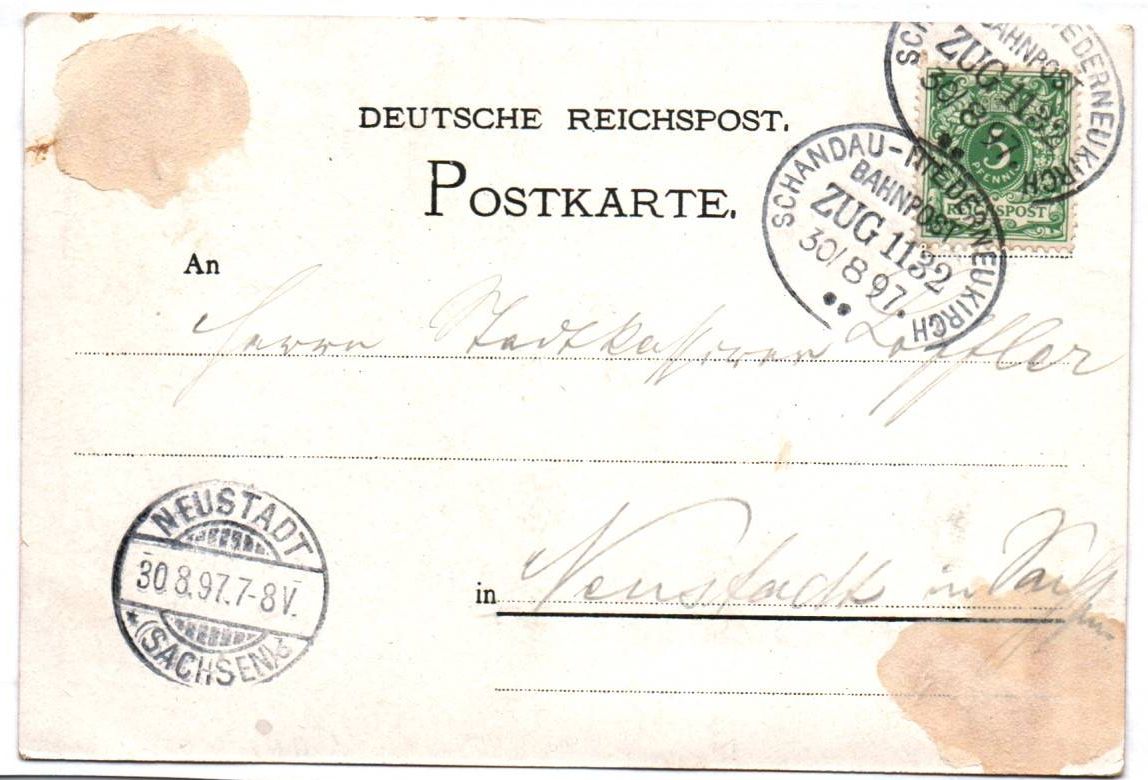 DEUTSCHE REICHSPOST.
POSTKARTE.
SCHANDAU-NIEDERNEUKIRCH
BAHNPOST
ZUG 1132
30/8 97.
SCH EDERNEUKIRCH
BAHNPOST
ZUG 1132
30/8 97.
5
PFENNIG
REICHSPOST
An
Herrn Stadtkassirer Löffler
NEUSTADT
30.8.97.7-8V.
(SACHSEN)
in Neustadt in Sachsen